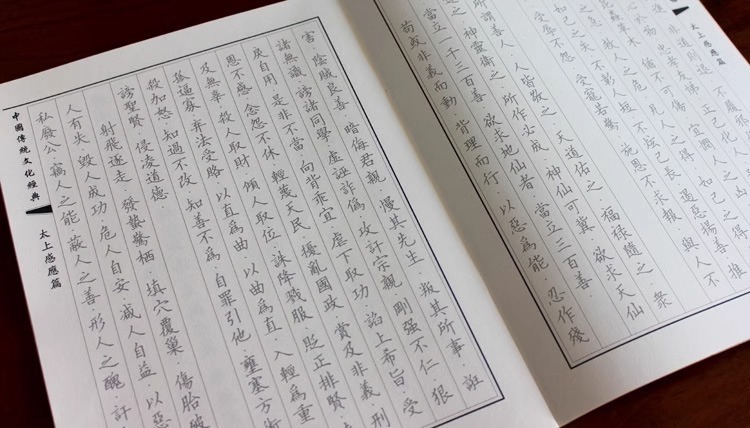 非道則退
心於物·忠孝友悌·正己化人
昆蟲草木·猶不可傷·宜憫人之凶
之急·救人之危·見人之得·如己之得
如己之失·不彰人短·不炫己長·遏惡揚善·推
受辱不怨·受寵若驚·施恩不求報·與人不
所謂善人·人皆敬之·天道佑之·福祿隨之·衆
之·神靈衛之·所作必成·神仙可冀·欲求天仙
當立一千三百善·欲求地仙者·當立三百善·
苟或非義而動·背理而行·以惡為能·忍作殘
害·陰賊良善·暗侮君親·慢其先生·叛其所事·誑
諸無識·謗諸同學·虛誣詐偽·攻訐宗親·剛强不仁·狠
戾自用·是非不當·向背乖宜·虐下取功·諂上希旨·受
恩不感·念怨不休·輕蔑天民·擾亂國政·賞及非義·刑
及無辜·殺人取財·傾人取位·誅降戮服·貶正排賢·
孤逼寡·棄法受賂·以直為曲·以曲為直·入輕為重
殺加怒·知過不改·知善不為·自罪引他·壅塞方術
謗聖賢·侵凌道德·
射飛逐走·發蟄驚栖·填穴覆巢·傷胎破
人有失·毀人成功·危人自安·減人自益·以惡
私廢公·竊人之能·蔽人之善·形人之醜·訐
中國傳統文化經典
太上感應篇